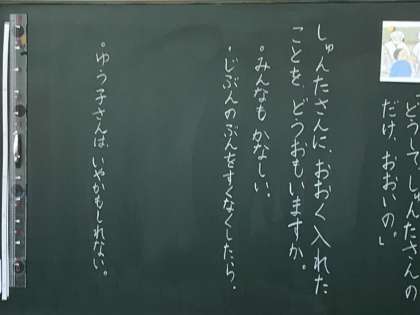 「どうして、しゅんたさんの
だけ、おおいの。」
しゅんたさんに、おおく入れた
ことを、どうおもいますか。
。みんなも かなしい。
・じぶんのぶんをすくなくしたら。
。ゆう子さんは、いやかもしれない。